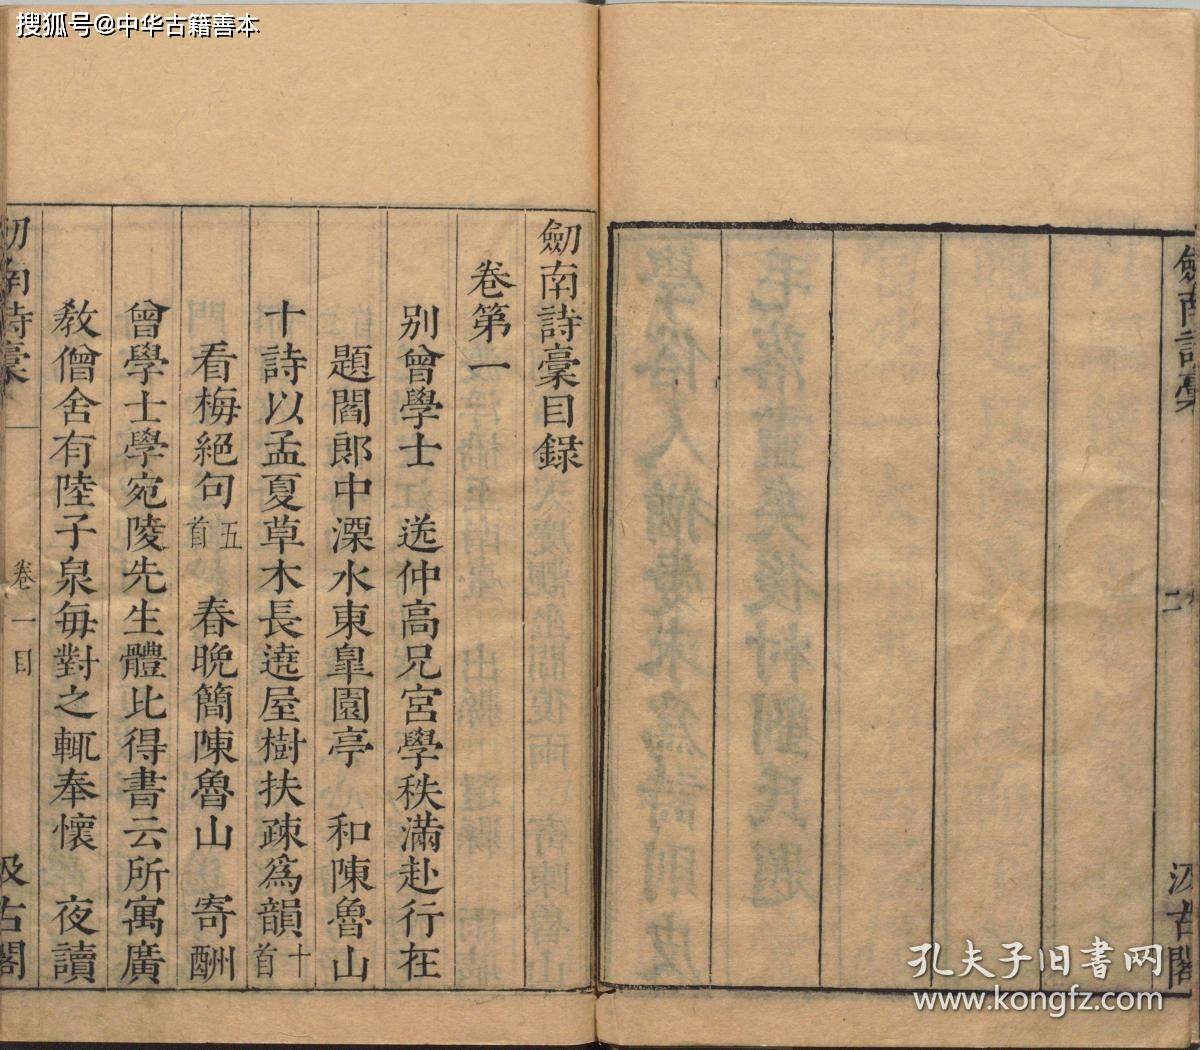 搜狐号@中华古籍善本
劒南詩稾
二
汲古閣
劒南詩稾目錄
卷第一
別曾學士 送仲高兄宮學秩滿赴行在
題閻郎中溧水東臯園亭 和陳魯山
十詩以孟夏草木長遶屋樹扶疎爲韻十首
看梅絕句五首 春晚簡陳魯山 寄酬
曾學士學宛陵先生體比得書云所寓廣
敎僧舍有陸子泉每對之輒奉懷 夜讀
劒南詩稾
卷一目
汲古閣
孔夫子旧书网
www.kongfz.com